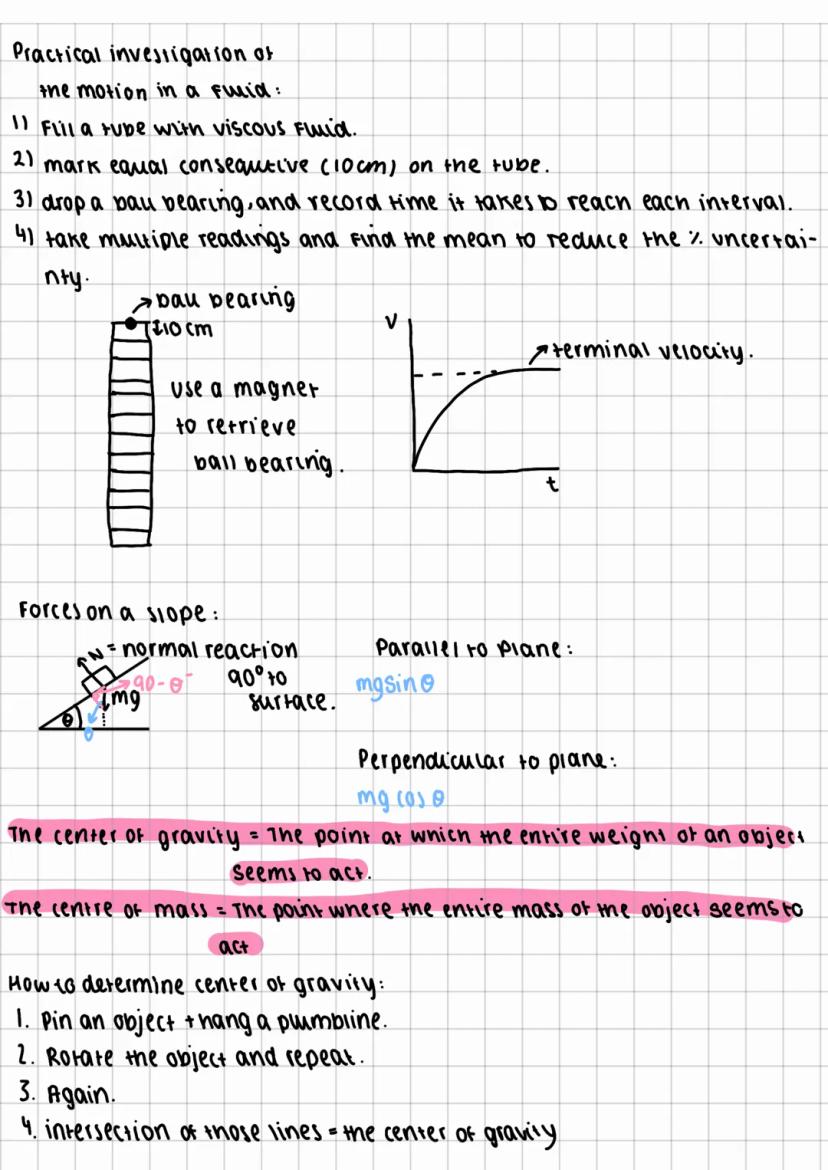 Practical investigation of
the motion in a fluid:
1) Fill a tube with viscous fluid.
2) mark equal consequtive (10cm) on the tube.
3) drop a ball bearing, and record time it takes to reach each interval.
4) take multiple readings and find the mean to reduce the % uncertai-
nty.
ball bearing
10 cm
V
terminal velocity.
use a magnet
to retrieve
ball bearing.
t
Forces on a slope:
N = normal reaction
90° to
surface.
90-θ
mg
θ
θ
Parallel to plane:
mgsinθ
Perpendicular to plane:
mg cos θ
The center of gravity = The point at which the entire weight of an object
seems to act.
The centre of mass = The point where the entire mass of the object seems to
act
How to determine center of gravity:
1. Pin an object + hang a plumbline.
2. Rotate the object and repeat.
3. Again.
4. intersection of those lines = the center of gravity